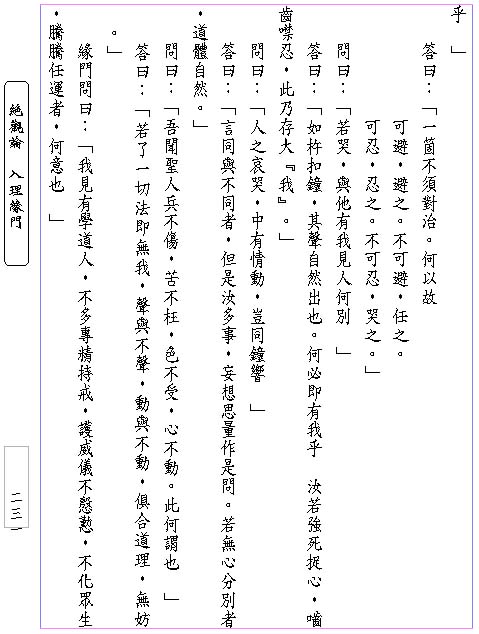 乎　」
答曰：「一箇不須對治。何以故
可避，避之。不可避，任之。
可忍，忍之。不可忍，哭之。」
問曰：「若哭，與他有我見人何別　」
答曰：「如杵扣鐘，其聲自然出也。何必即有我乎　汝若強死捉心，嚙
齒噤忍，此乃存大『我』。」
問曰：「人之哀哭，中有情動，豈同鐘響　」
答曰：「言同與不同者，但是汝多事，妄想思量作是問。若無心分別者
，道體自然。」
問曰：「吾聞聖人兵不傷，苦不枉，色不受，心不動。此何謂也　」
答曰：「若了一切法即無我，聲與不聲，動與不動，俱合道理，無妨
。」
緣門問曰：「我見有學道人，不多專精持戒，護威儀不慇懃，不化眾生
，騰騰任運者，何意也　」
絕觀論　入理緣門
二三一